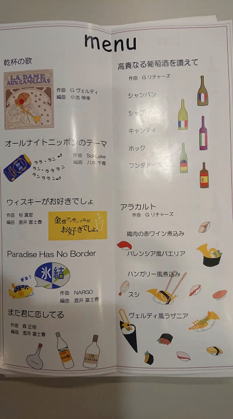 menu
乾杯の歌
作曲 G ヴェルディ
LA DAME
AUX CAMÉLIAS
オールナイトニッポンのテーマ
ウィスキーがお好きでしょ
作曲 杉 真理
編曲 直井 富士香
Paradise Has No Border
氷結
作曲 NARGO
また君に恋してる
作曲 森 正明
高貴なる葡萄酒を讃えて
作曲 G リチャーズ
シャンパン
キャンティ
ホック
アラカルト
作曲 G リチャーズ
鶏肉の赤ワイン煮込み
バレンシア風パエリア
ハンガリー風煮込み
スシ
ヴェルディ風ラザニア